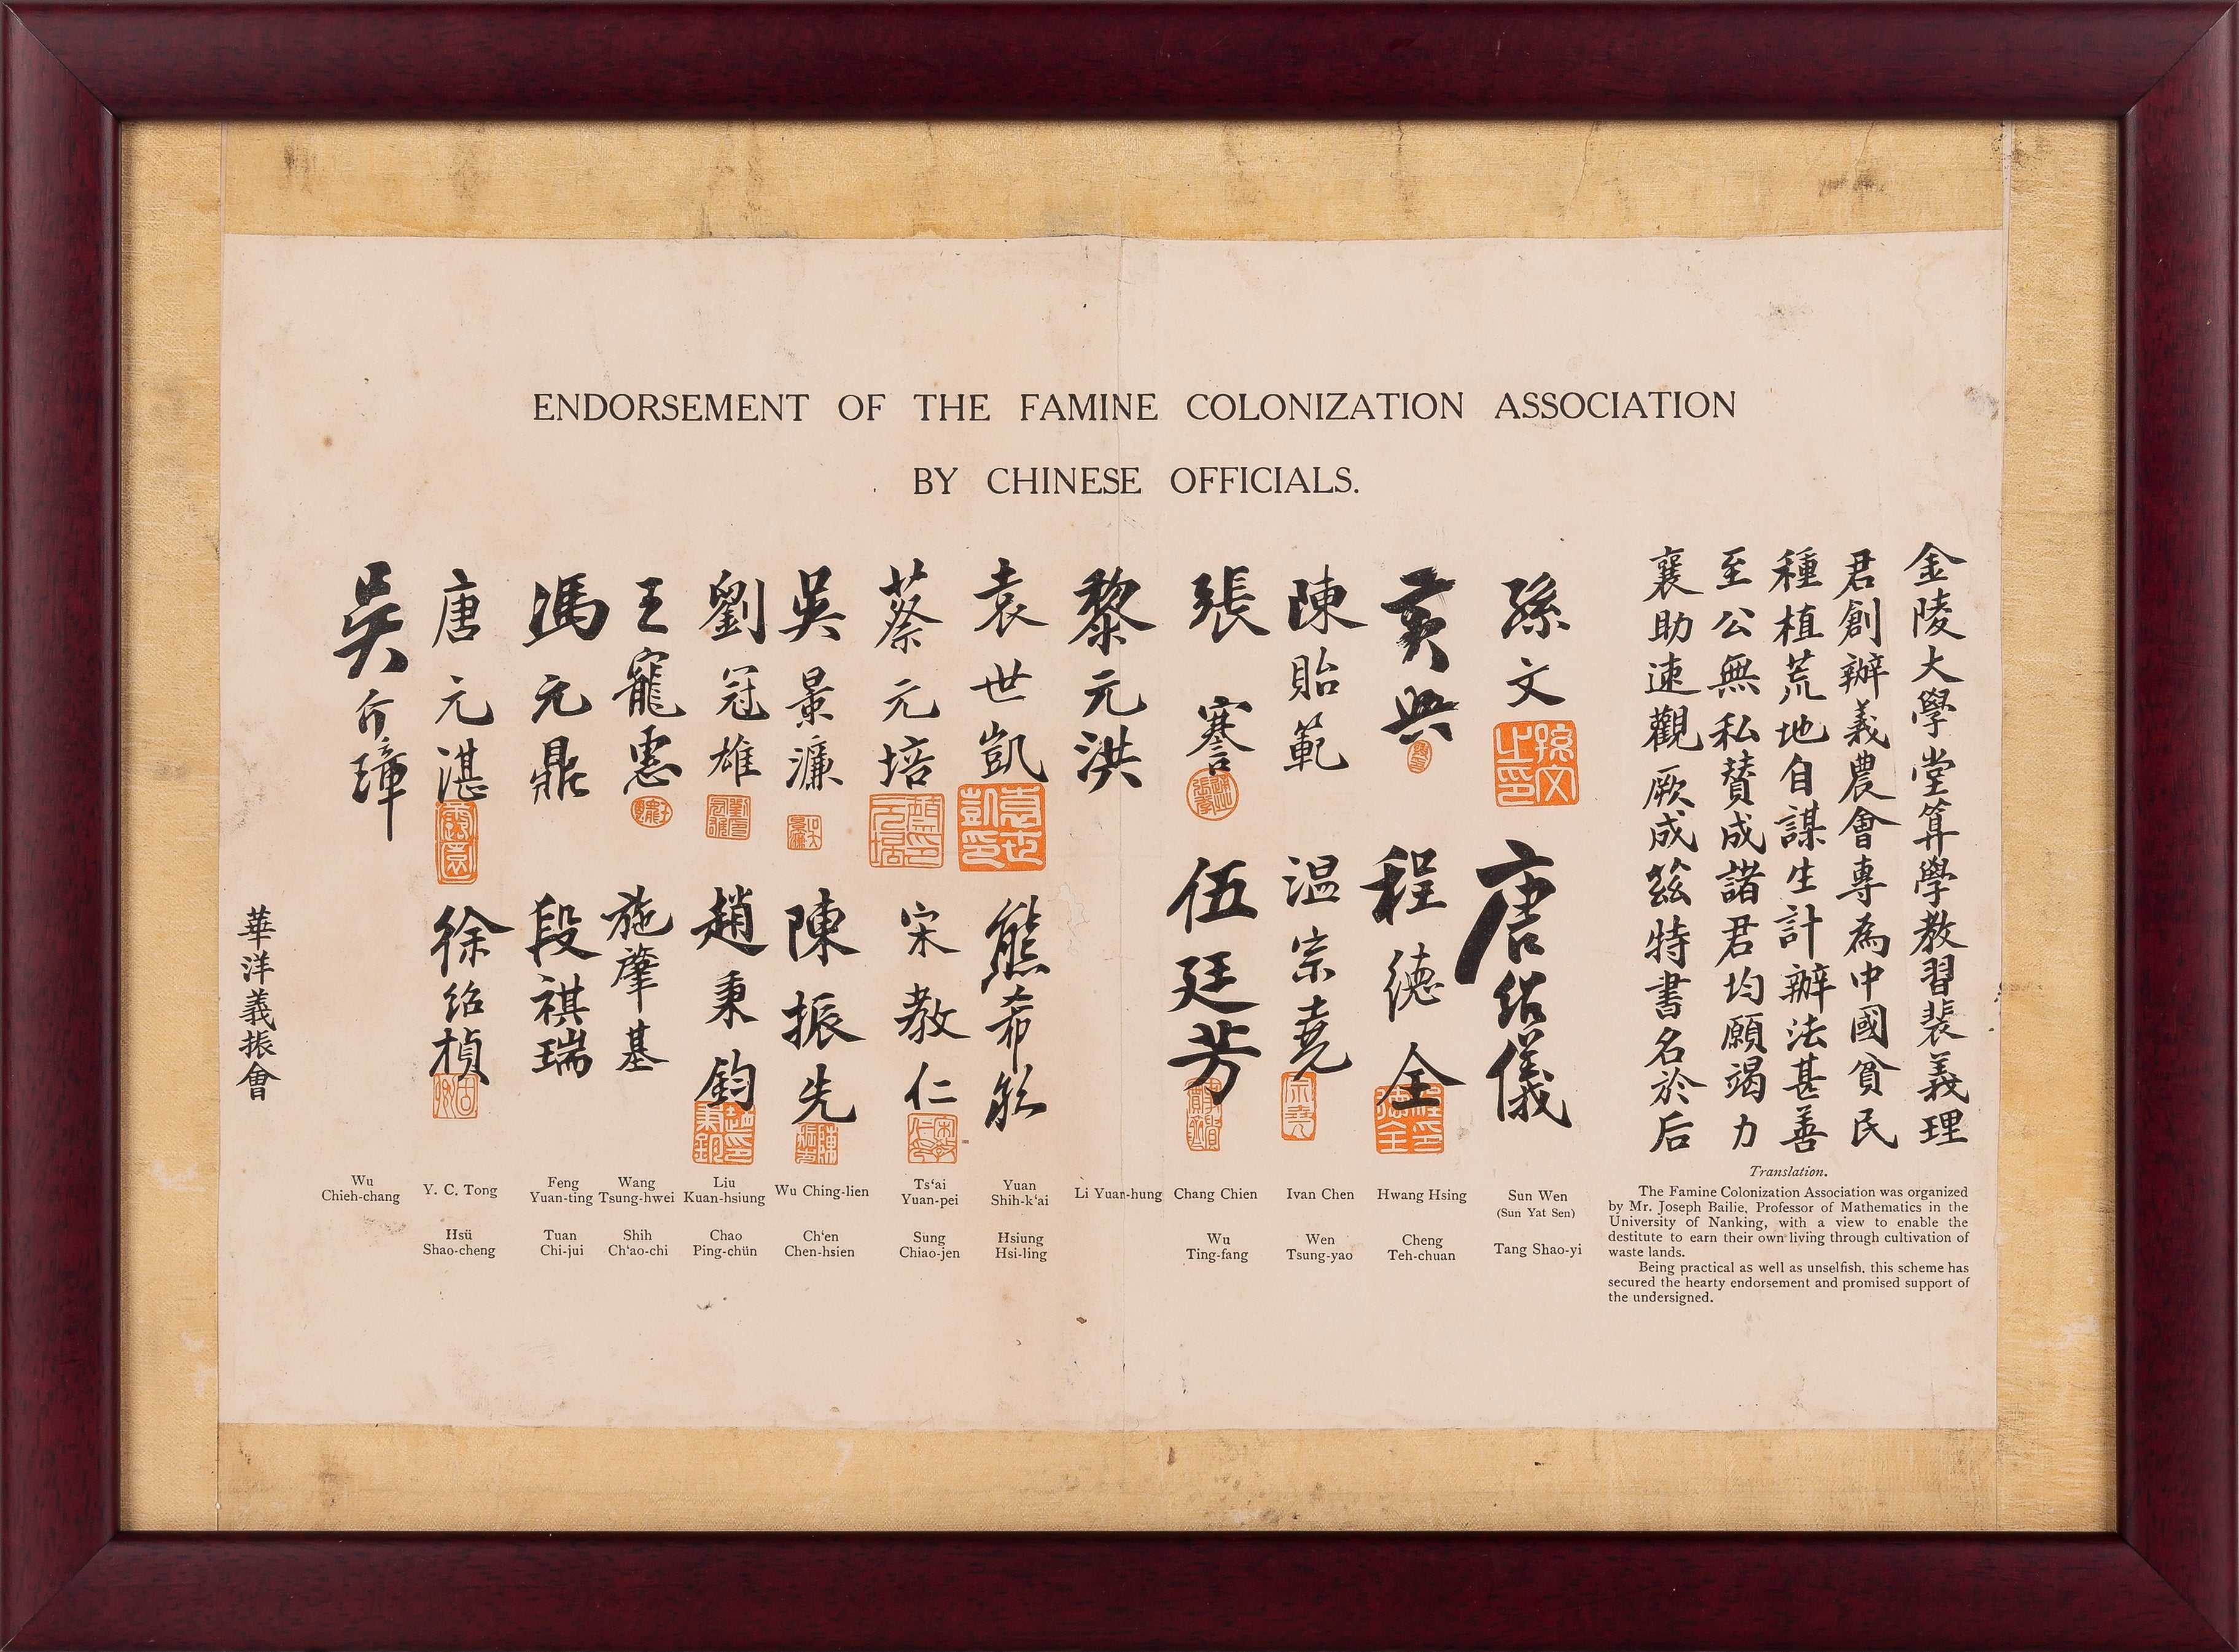 ENDORSEMENT OF THE FAMINE COLONIZATION ASSOCIATION
BY CHINESE OFFICIALS.
金陵大學堂算學教習裴義理
君創辦義農會專為中國貧民
種植荒地自謀生計辦法甚善
至公無私贊成諸君均願竭力
襄助速觀厥成茲特書名於后
孫文
唐紹儀
黃興
程德全
陳貽範
温宗堯
張謇
伍廷芳
黎元洪
袁世凱
熊希齡
蔡元培
宋教仁
吳景濂
陳振先
劉冠雄
趙秉鈞
王寵惠
施肇基
馮元鼎
段祺瑞
唐元湛
徐紹楨
吳介璋
華洋義振會
Translation.
The Famine Colonization Association was organized
by Mr. Joseph Bailie, Professor of Mathematics in the
University of Nanking, with a view to enable the
destitute to earn their own living through cultivation of
waste lands.
Being practical as well as unselfish, this scheme has
secured the hearty endorsement and promised support of
the undersigned.
Sun Wen
(Sun Yat Sen)
Tang Shao-yi
Hwang Hsing
Cheng
Teh-chuan
Ivan Chen
Wen
Tsung-yao
Chang Chien
Wu
Ting-fang
Li Yuan-hung
Yuan
Shih-k‘ai
Hsiung
Hsi-ling
Ts‘ai
Yuan-pei
Sung
Chiao-jen
Wu Ching-lien
Ch‘en
Chen-hsien
Liu
Kuan-hsiung
Chao
Ping-chün
Wang
Tsung-hwei
Shih
Ch‘ao-chi
Feng
Yuan-ting
Tuan
Chi-jui
Y. C. Tong
Hsü
Shao-cheng
Wu
Chieh-chang
孫文之印
袁世凱印